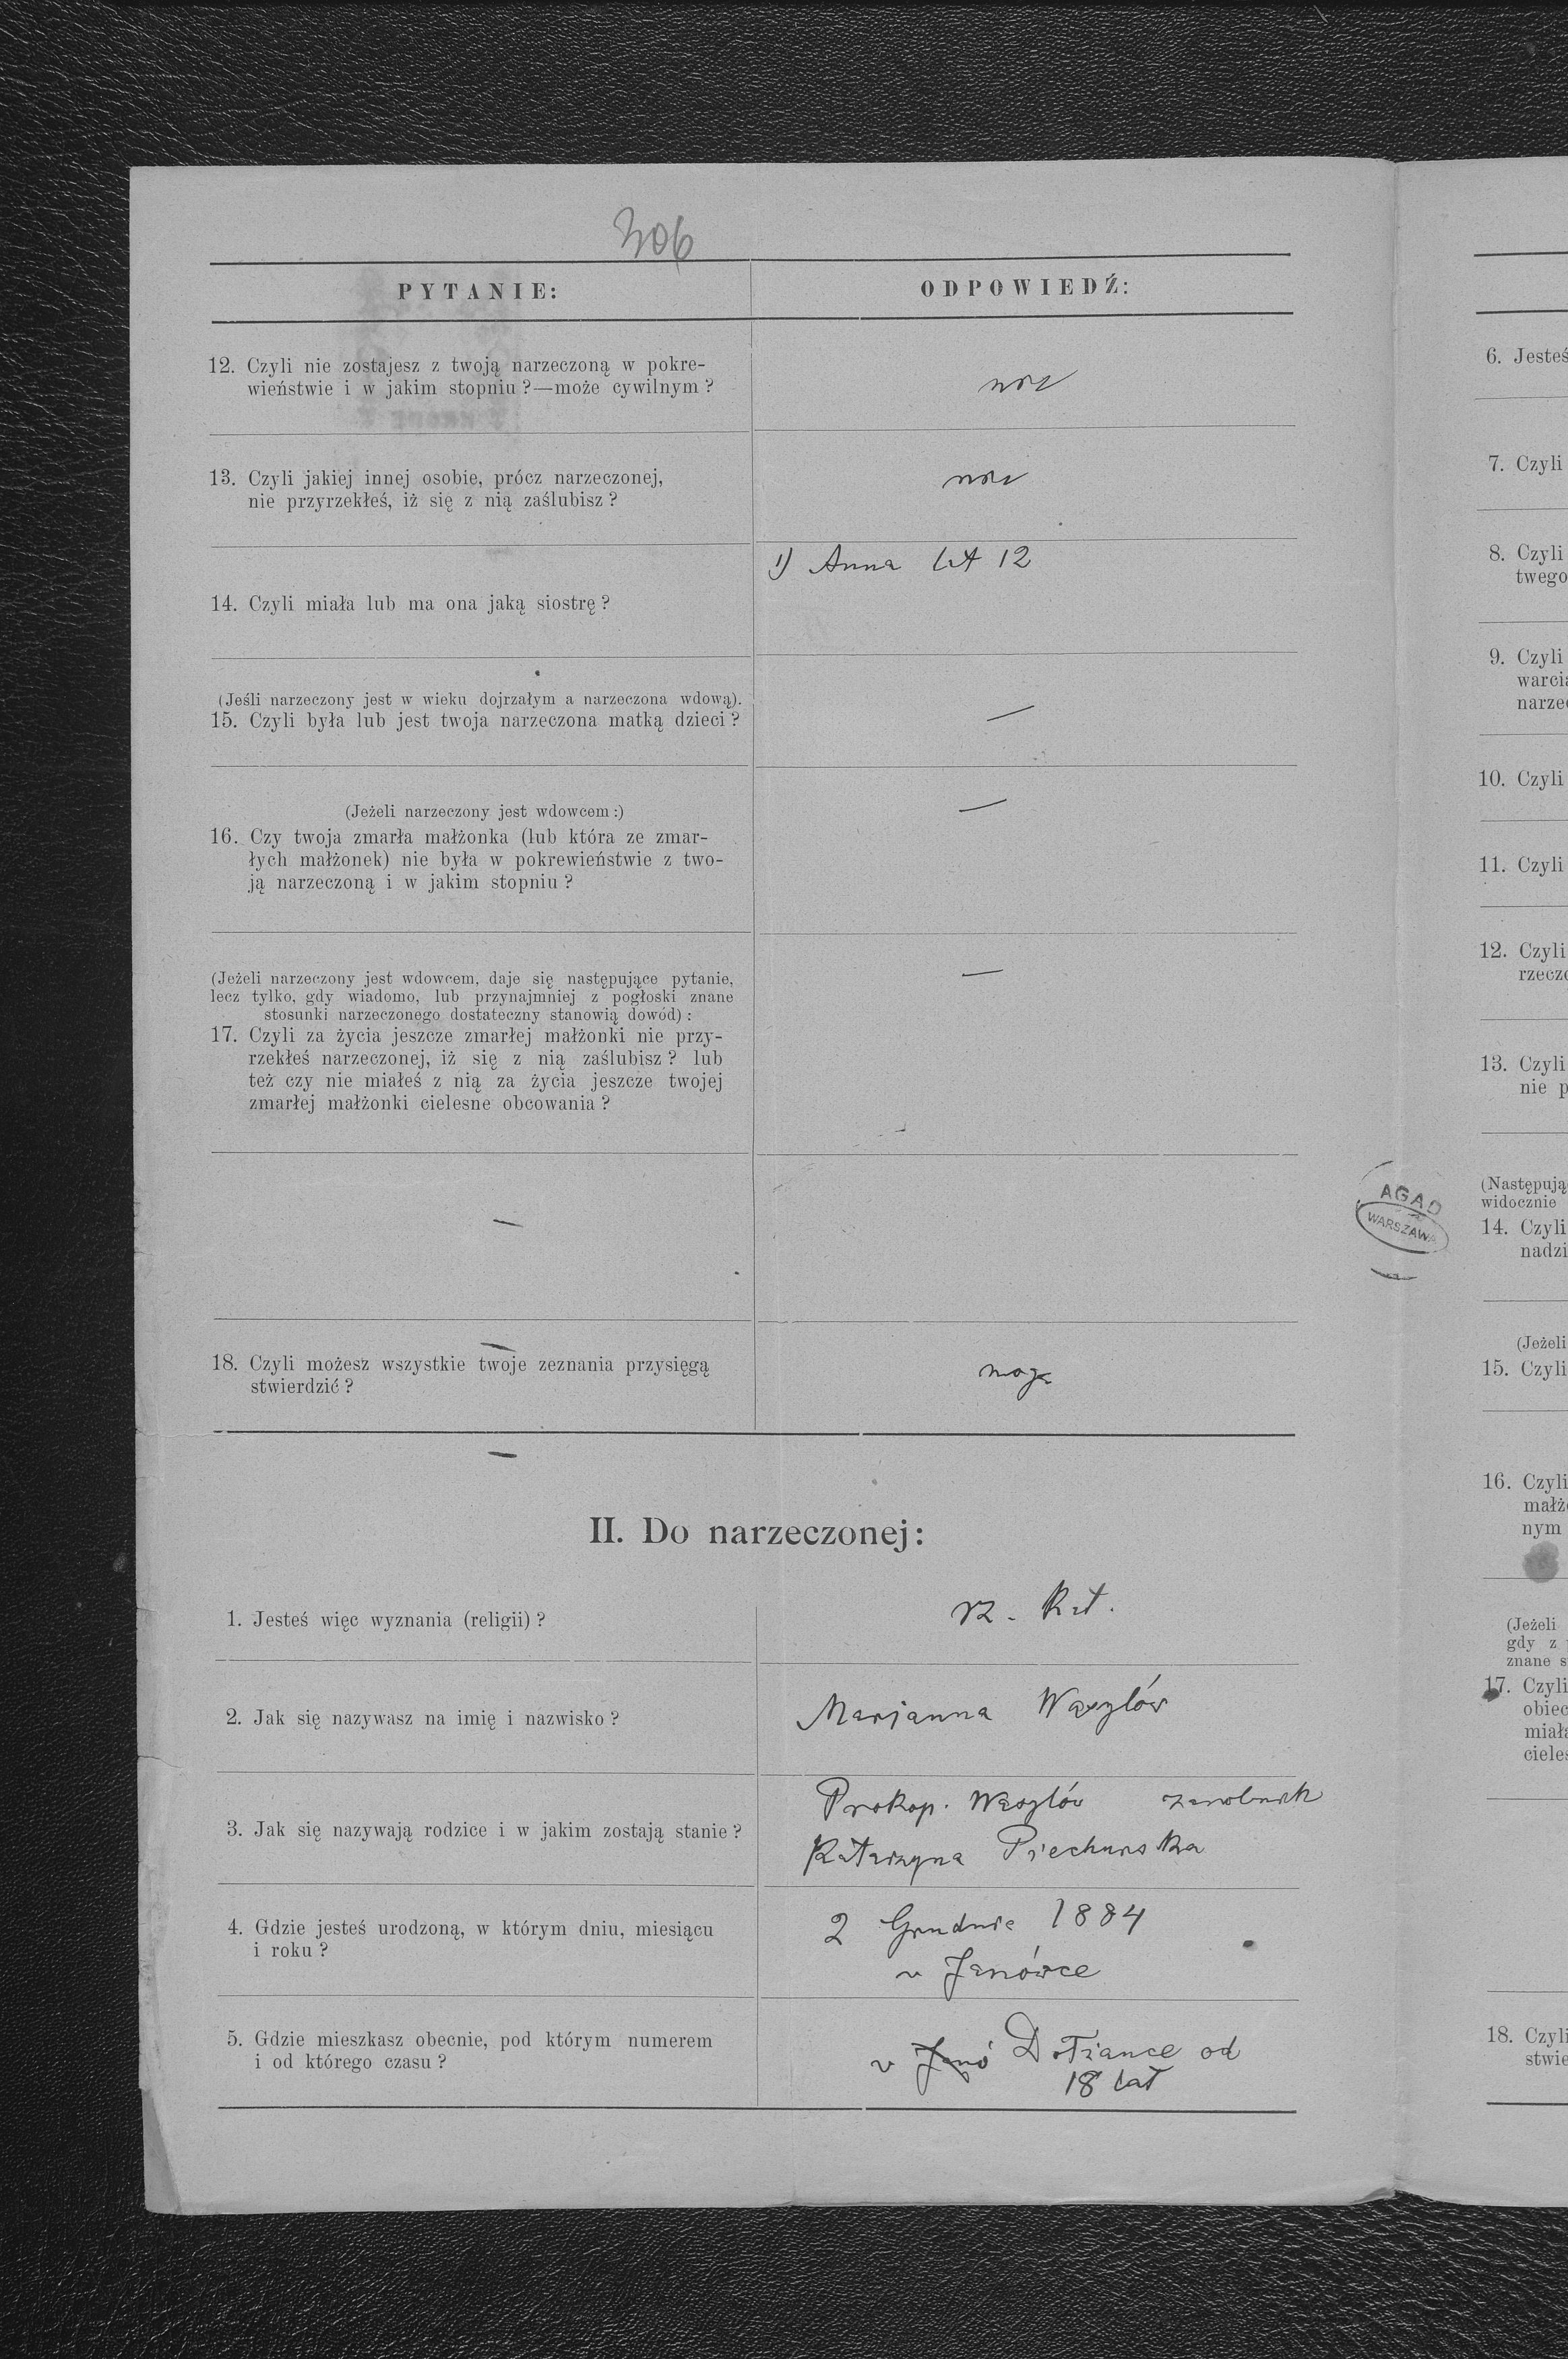 306
PYTANIE:
ODPOWIEDŹ:
12. Czyli nie zostajesz z twoją narzeczoną w pokre-
wieństwie i w jakim stopniu?—może cywilnym?
nie
13. Czyli jakiej innej osobie, prócz narzeczonej,
nie przyrzekłeś, iż się z nią zaślubisz?
nie
1) Anna lat 12
14. Czyli miała lub ma ona jaką siostrę?
(Jeśli narzeczony jest w wieku dojrzałym a narzeczona wdową).
15. Czyli była lub jest twoja narzeczona matką dzieci?
—
(Jeżeli narzeczony jest wdowcem:)
16. Czy twoja zmarła małżonka (lub która ze zmar-
łych małżonek) nie była w pokrewieństwie z two-
ją narzeczoną i w jakim stopniu?
—
(Jeżeli narzeczony jest wdowcem, daje się następujące pytanie,
lecz tylko, gdy wiadomo, lub przynajmniej z pogłoski znane
stosunki narzeczonego dostateczny stanowią dowód):
17. Czyli za życia jeszcze zmarłej małżonki nie przy-
rzekłeś narzeczonej, iż się z nią zaślubisz? lub
też czy nie miałeś z nią za życia jeszcze twojej
zmarłej małżonki cielesne obcowania?
—
18. Czyli możesz wszystkie twoje zeznania przysięgą
stwierdzić?
mogę
II. Do narzeczonej:
1. Jesteś więc wyznania (religii)?
rz. kat.
2. Jak się nazywasz na imię i nazwisko?
Marjanna
3. Jak się nazywają rodzice i w jakim zostają stanie?
Prokop. zarobnik
Katarzyna Piechurska
4. Gdzie jesteś urodzoną, w którym dniu, miesiącu
i roku?
2 Grudnia 1884
w Janówce
5. Gdzie mieszkasz obecnie, pod którym numerem
i od którego czasu?
w Janó od
18 lat
AGAD
WARSZAWA
6. Jesteś
7. Czyli
8. Czyli
twego
9. Czyli
warcia
narze
10. Czyli
11. Czyli
12. Czyli
rzecz
13. Czyli
nie p
(Następują
widocznie
14. Czyli
nadzi
(Jeżeli
15. Czyli
16. Czyli
małż
nym
(Jeżeli
gdy z
znane s
17. Czyli
obiec
miała
cieles
18. Czyli
stwie